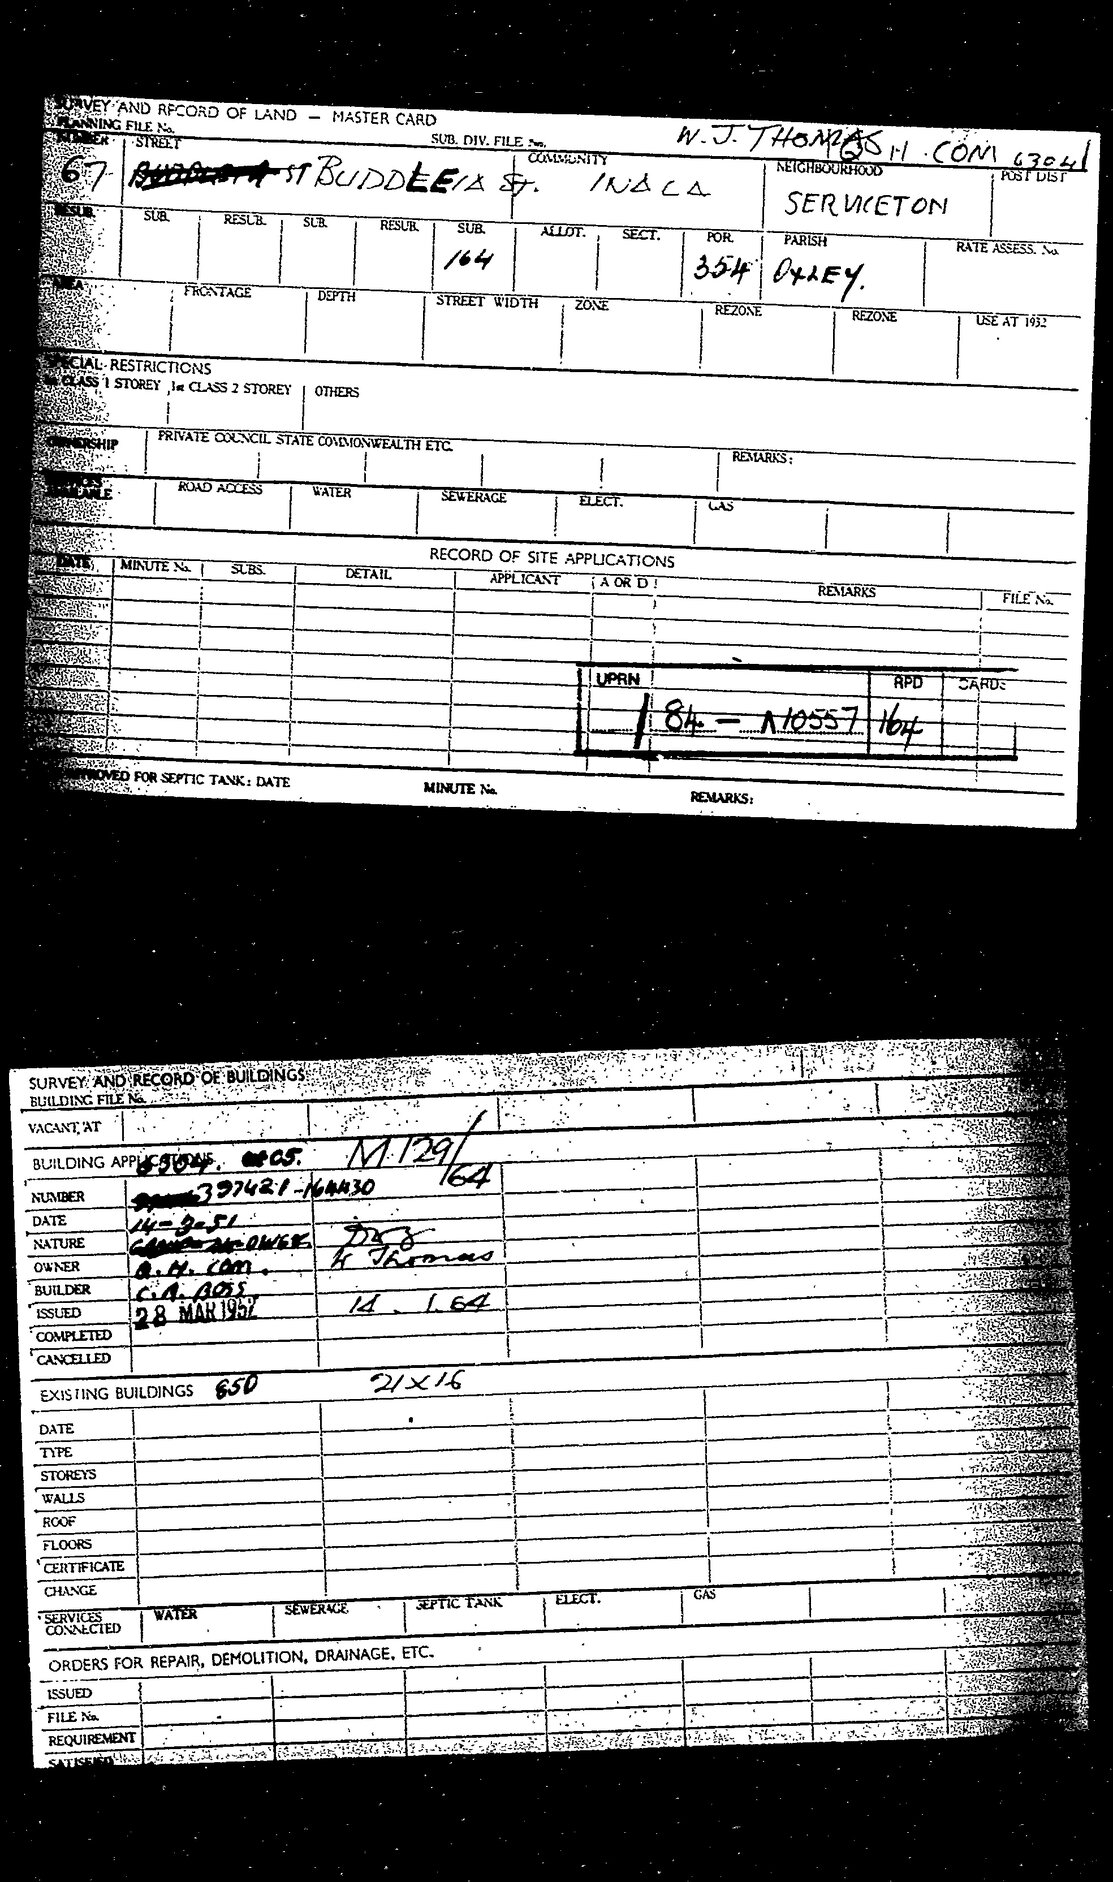 SURVEY AND RECORD OF LAND — MASTER CARD
PLANNING FILE No. SUB. DIV. FILE No. W. J. THOMAS Q H. COM 6304
NUMBER STREET COMMUNITY NEIGHBOURHOOD POST DIST
67 ST BUDDLEIA St. INALA SERVICETON
RESUB. SUB. RESUB. SUB. RESUB. SUB. ALLOT. SECT. POR. PARISH RATE ASSESS. No.
164 354 OXLEY.
AREA FRONTAGE DEPTH STREET WIDTH ZONE REZONE REZONE USE AT 1952
SPECIAL RESTRICTIONS
1st CLASS 1 STOREY 1st CLASS 2 STOREY OTHERS
OWNERSHIP PRIVATE COUNCIL STATE COMMONWEALTH ETC. REMARKS:
SERVICES AVAILABLE ROAD ACCESS WATER SEWERAGE ELECT. GAS
RECORD OF SITE APPLICATIONS
DATE MINUTE No. SUBS. DETAIL APPLICANT A OR D REMARKS FILE No.
UPRN RPD CARDS
/ 84 — A10557 164
APPROVED FOR SEPTIC TANK: DATE MINUTE No. REMARKS:
SURVEY AND RECORD OF BUILDINGS
BUILDING FILE No.
VACANT AT
BUILDING APPLICATIONS M129/64
NUMBER 397421-164430
DATE 14-3-51
NATURE
OWNER Q. H. COM. W Thomas
BUILDER C. A. ROSS
ISSUED 28 MAR 1952 14. 1. 64
COMPLETED
CANCELLED
EXISTING BUILDINGS 850 21 x 16
DATE
TYPE
STOREYS
WALLS
ROOF
FLOORS
CERTIFICATE
CHANGE
SERVICES CONNECTED WATER SEWERAGE SEPTIC TANK ELECT. GAS
ORDERS FOR REPAIR, DEMOLITION, DRAINAGE, ETC.
ISSUED
FILE No.
REQUIREMENT
SATISFIED